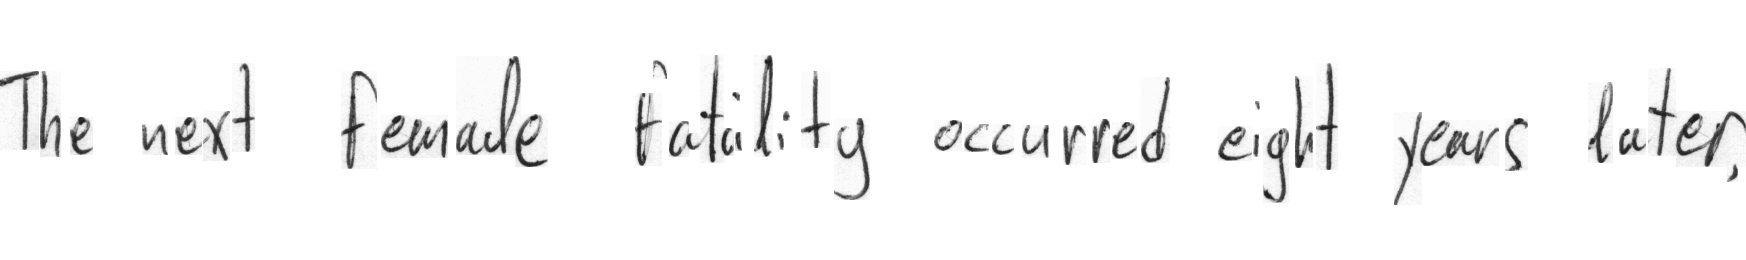 The next female fatality occurred eight years later,